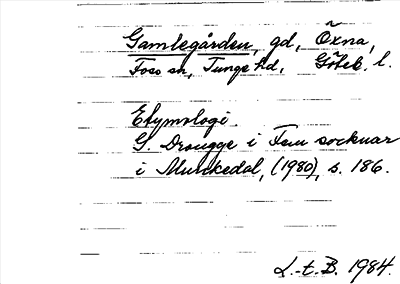 Gamlegården, gd, Öxna,
Foss sn, Tunge hd, Göteb. l.
Etymologi.
G. Drougge i Fem socknar
i Munkedal, (1980), s. 186.
L.-t. B. 1984.